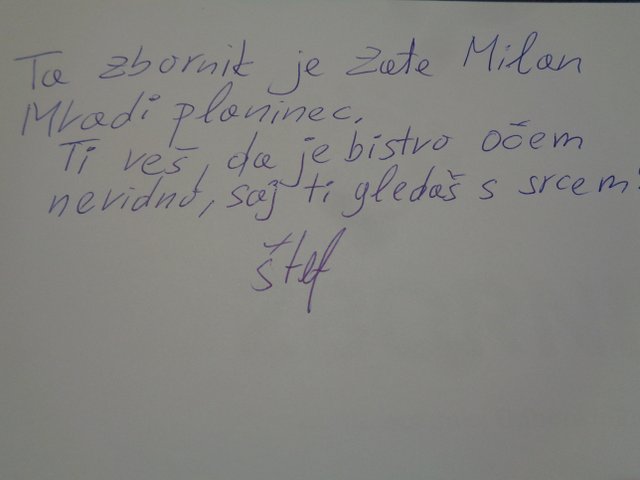 Ta zbornik je zate Milan
Mladi planinec.
Ti veš, da je bistvo očem
nevidno, saj ti gledaš s srcem!
Štef